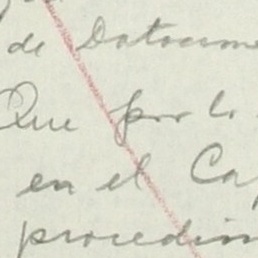 de Datum
Que por lo
en el Ca
procedim